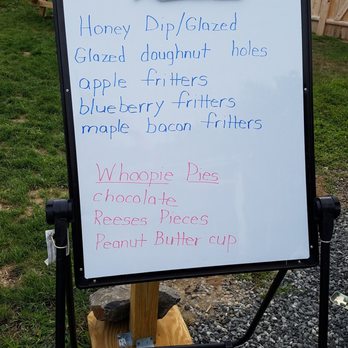 Honey Dip/Glazed
Glazed doughnut holes
apple fritters
blueberry fritters
maple bacon fritters
Whoopie Pies
chocolate
Reeses Pieces
Peanut Butter cup